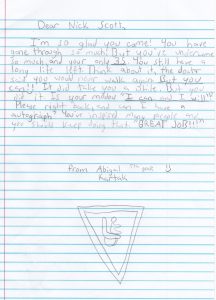 Dear Nick Scott,
I'm so glad you came! You have
gone through so much! But you is
so much and your only 33. You still have a
long life left. Think about it, the doctor
said you would never walk again. But you
can!! It did take you a while. But you
did it. Is your motow "I can and I will"?
Please right back, and can I have a
autograph? You've many people and
you should keep doing that. "GREAT JOB!!!"
From Abigail